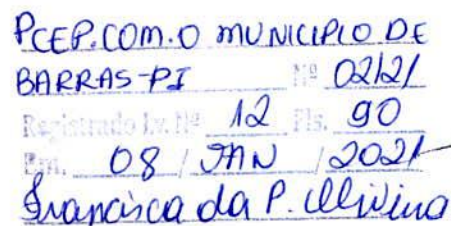 PCEP.COM.O MUNICIPIO DE
BARRAS-PI Nº 02/21
Registrado Lv. Nº 12 Fls. 90
Em. 08 / JAN / 2021
Francisca da P. Oliveira